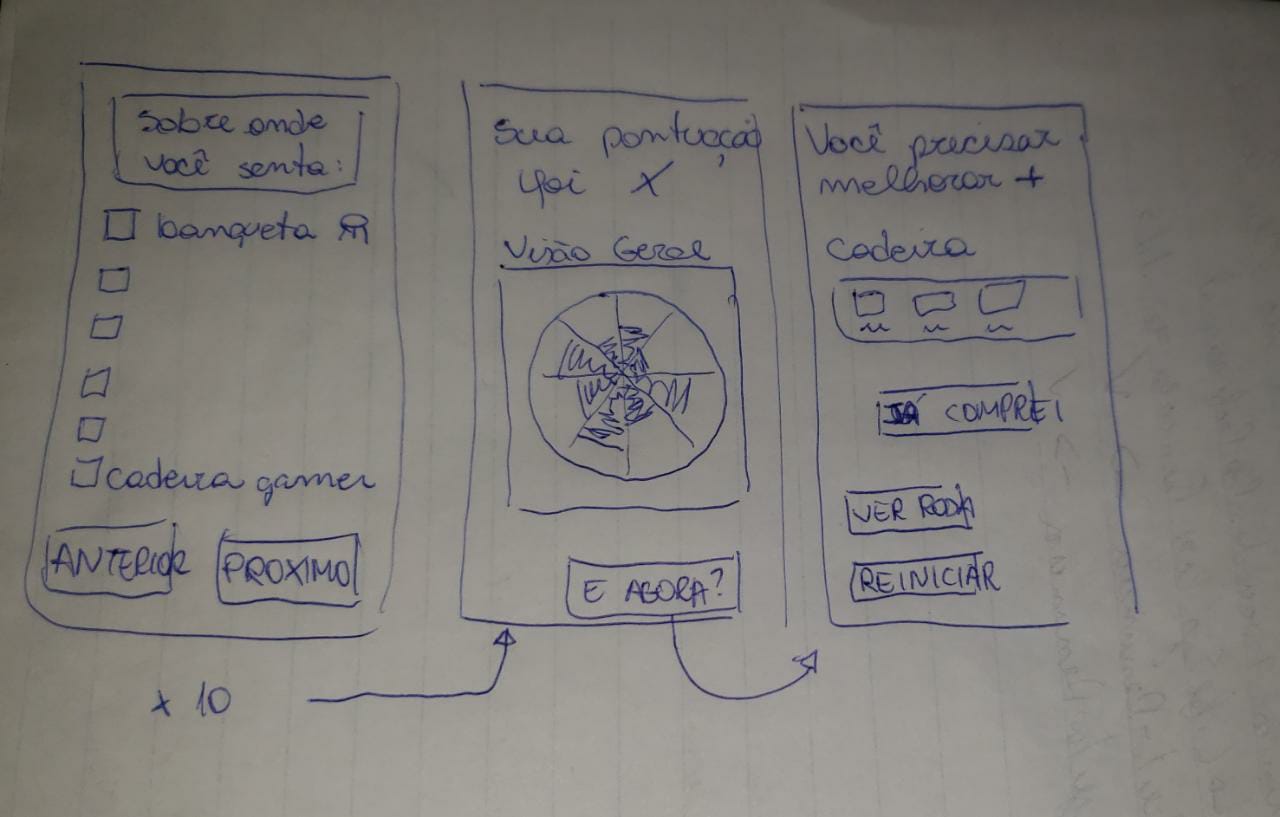 Sobre onde
você senta:
banqueta
cadeira gamer
ANTERIOR
PROXIMO
x 10
Sua pontuação
foi X
Visão Geral
E AGORA?
Você precisar
melhorar +
Cadeira
JÁ COMPREI
VER RODA
REINICIAR